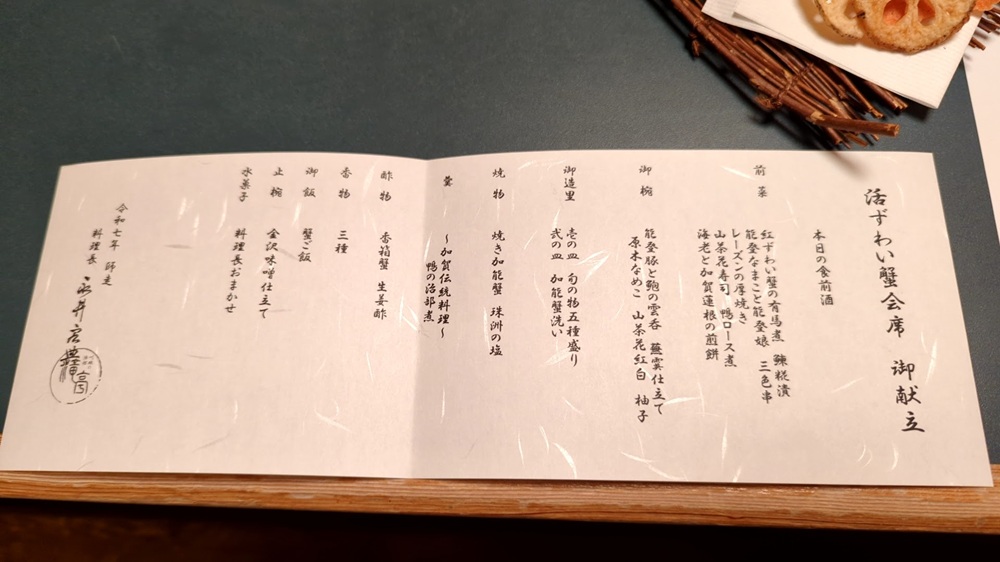 活ずわい蟹会席　御献立
本日の食前酒
前菜　紅ずわい蟹の有馬煮　鰊糀漬
能登なまこと能登娘　三色串
レーズンの厚焼き
山茶花寿司　鴨ロース煮
海老と加賀蓮根の煎餅
御椀　能登豚と鮑の雲呑　蕪霙仕立て
原木なめこ　山茶花紅白　柚子
御造里　壱の皿　旬の物五種盛り
弐の皿　加能蟹洗い
焼物　焼き加能蟹　珠洲の塩
〜加賀伝統料理〜
鴨の治部煮
酢物　香箱蟹　生姜酢
香物　三種
御飯　蟹ご飯
止椀　金沢味噌仕立て
水菓子　料理長おまかせ
令和七年　師走
料理長